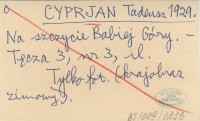 CYPRJAN Tadeusz 1929.
Na szczycie Babiej Góry. –
Tęcza 3, nr 3, il.
Tylko fot. (krajobraz
zimowy).